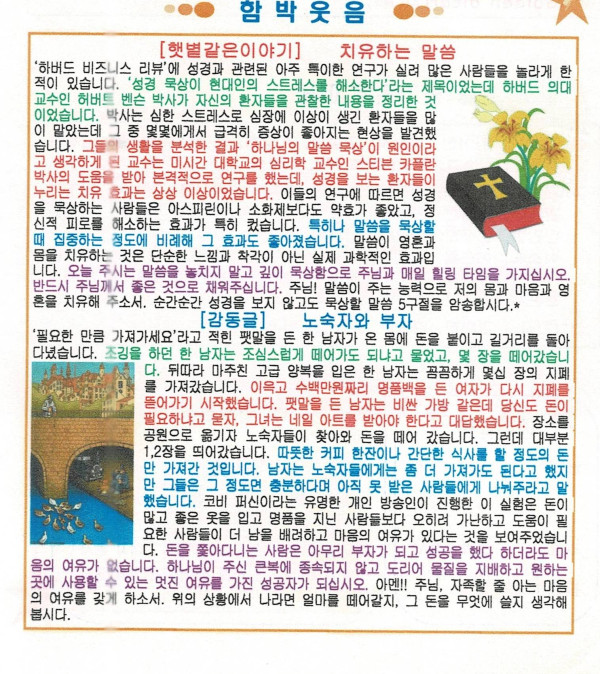 함박웃음
[햇볕같은이야기] 치유하는 말씀
'하버드 비즈니스 리뷰'에 성경과 관련된 아주 특이한 연구가 실려 많은 사람들을 놀라게 한
적이 있습니다. '성경 묵상이 현대인의 스트레스를 해소한다'라는 제목이었는데 하버드 의대
교수인 허버트 벤슨 박사가 자신의 환자들을 관찰한 내용을 정리한 것
이었습니다. 박사는 심한 스트레스로 심장에 이상이 생긴 환자들을 많
이 맡았는데 그 중 몇몇에게서 급격히 증상이 좋아지는 현상을 발견했
습니다. 그들의 생활을 분석한 결과 '하나님의 말씀 묵상'이 원인이라
고 생각하게 된 교수는 미시간 대학교의 심리학 교수인 스티븐 카플란
박사의 도움을 받아 본격적으로 연구를 했는데, 성경을 보는 환자들이
누리는 치유 효과는 상상 이상이었습니다. 이들의 연구에 따르면 성경
을 묵상하는 사람들은 아스피린이나 소화제보다도 약효가 좋았고, 정
신적 피로를 해소하는 효과가 특히 컸습니다. 특히나 말씀을 묵상할
때 집중하는 정도에 비례해 그 효과도 좋아졌습니다. 말씀이 영혼과
몸을 치유하는 것은 단순한 느낌과 착각이 아닌 실제 과학적인 효과입
니다. 오늘 주시는 말씀을 놓치지 말고 깊이 묵상함으로 주님과 매일 힐링 타임을 가지십시오.
반드시 주님께서 좋은 것으로 채워주십니다. 주님! 말씀이 주는 능력으로 저의 몸과 마음과 영
혼을 치유해 주소서. 순간순간 성경을 보지 않고도 묵상할 말씀 5구절을 암송합시다.*
[감동글] 노숙자와 부자
'필요한 만큼 가져가세요'라고 적힌 팻말을 든 한 남자가 온 몸에 돈을 붙이고 길거리를 돌아
다녔습니다. 조깅을 하던 한 남자는 조심스럽게 떼어가도 되냐고 물었고, 몇 장을 떼어갔습니
다. 뒤따라 마주친 고급 양복을 입은 한 남자는 꼼꼼하게 몇십 장의 지폐
를 가져갔습니다. 이윽고 수백만원짜리 명품백을 든 여자가 다시 지폐를
뜯어가기 시작했습니다. 팻말을 든 남자는 비싼 가방 같은데 당신도 돈이
필요하냐고 묻자, 그녀는 네일 아트를 받아야 한다고 대답했습니다. 장소를
공원으로 옮기자 노숙자들이 찾아와 돈을 떼어 갔습니다. 그런데 대부분
1,2장을 띄어갔습니다. 따뜻한 커피 한잔이나 간단한 식사를 할 정도의 돈
만 가져간 것입니다. 남자는 노숙자들에게는 좀 더 가져가도 된다고 했지
만 그들은 그 정도면 충분하다며 아직 못 받은 사람들에게 나눠주라고 말
했습니다. 코비 퍼신이라는 유명한 개인 방송인이 진행한 이 실험은 돈이
많고 좋은 옷을 입고 명품을 지닌 사람들보다 오히려 가난하고 도움이 필
요한 사람들이 더 남을 배려하고 마음의 여유가 있다는 것을 보여주었습니
다. 돈을 쫓아다니는 사람은 아무리 부자가 되고 성공을 했다 하더라도 마
음의 여유가 없습니다. 하나님이 주신 큰복에 종속되지 않고 도리어 물질을 지배하고 원하는
곳에 사용할 수 있는 멋진 여유를 가진 성공자가 되십시오. 아멘!! 주님, 자족할 줄 아는 마음
의 여유를 갖게 하소서. 위의 상황에서 나라면 얼마를 떼어갈지, 그 돈을 무엇에 쓸지 생각해
봅시다.